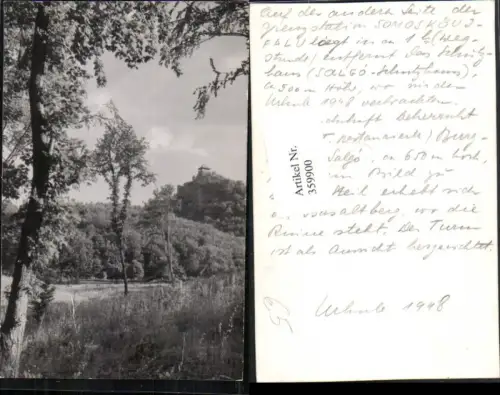 Auf der andern Seite der
Grenzstation SOMOSKÖUJ-
FALU liegt in ca 1 1/2 (Weg-
stunde) entfernt das Schutz-
haus (SALGO-Schutzhaus),
ca 500 m Höhe, wo wir den
Urlaub 1948 verbrachten.
schaft beherrscht
Burg
Salgo, ca 650 m hoch,
im Bild zu
Teil erhebt sich
Basaltberg, wo die
Ruine steht. Der Turm
ist als Aussicht hergerichtet.
Artikel Nr.
359900
Urlaub 1948